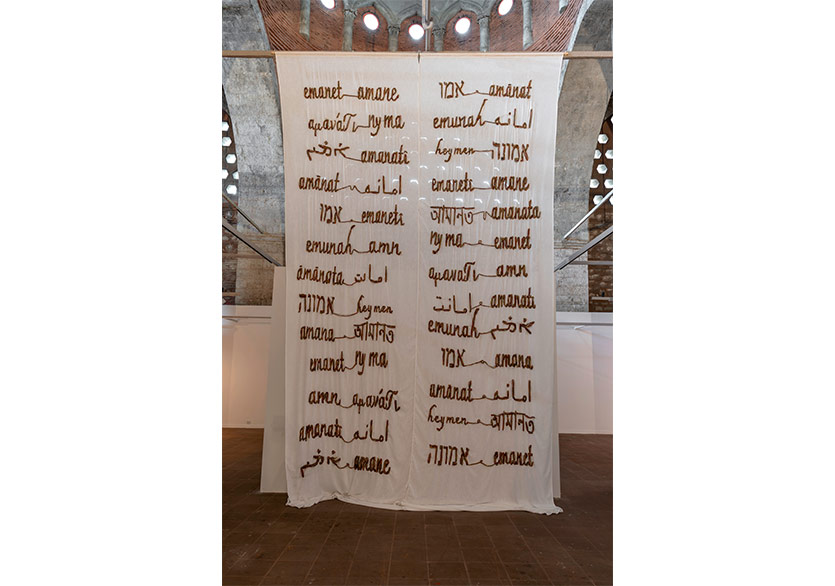 emanet amane
αμανάτι ny ma
amanati
amānat امانه
אמו emaneti
emunah amn
āmānata امانت
אמונה heymen
amana আমানত
emanet ny ma
amn αμανάτι
amanati امانه
amane
אמו amānat
emunah امانه
heymen אמונה
emaneti amane
আমানত amanata
ny ma emanet
αμανάτι amn
امانت amanati
emunah
אמו amana
amānat امانه
heymen আমানত
אמונה emanet